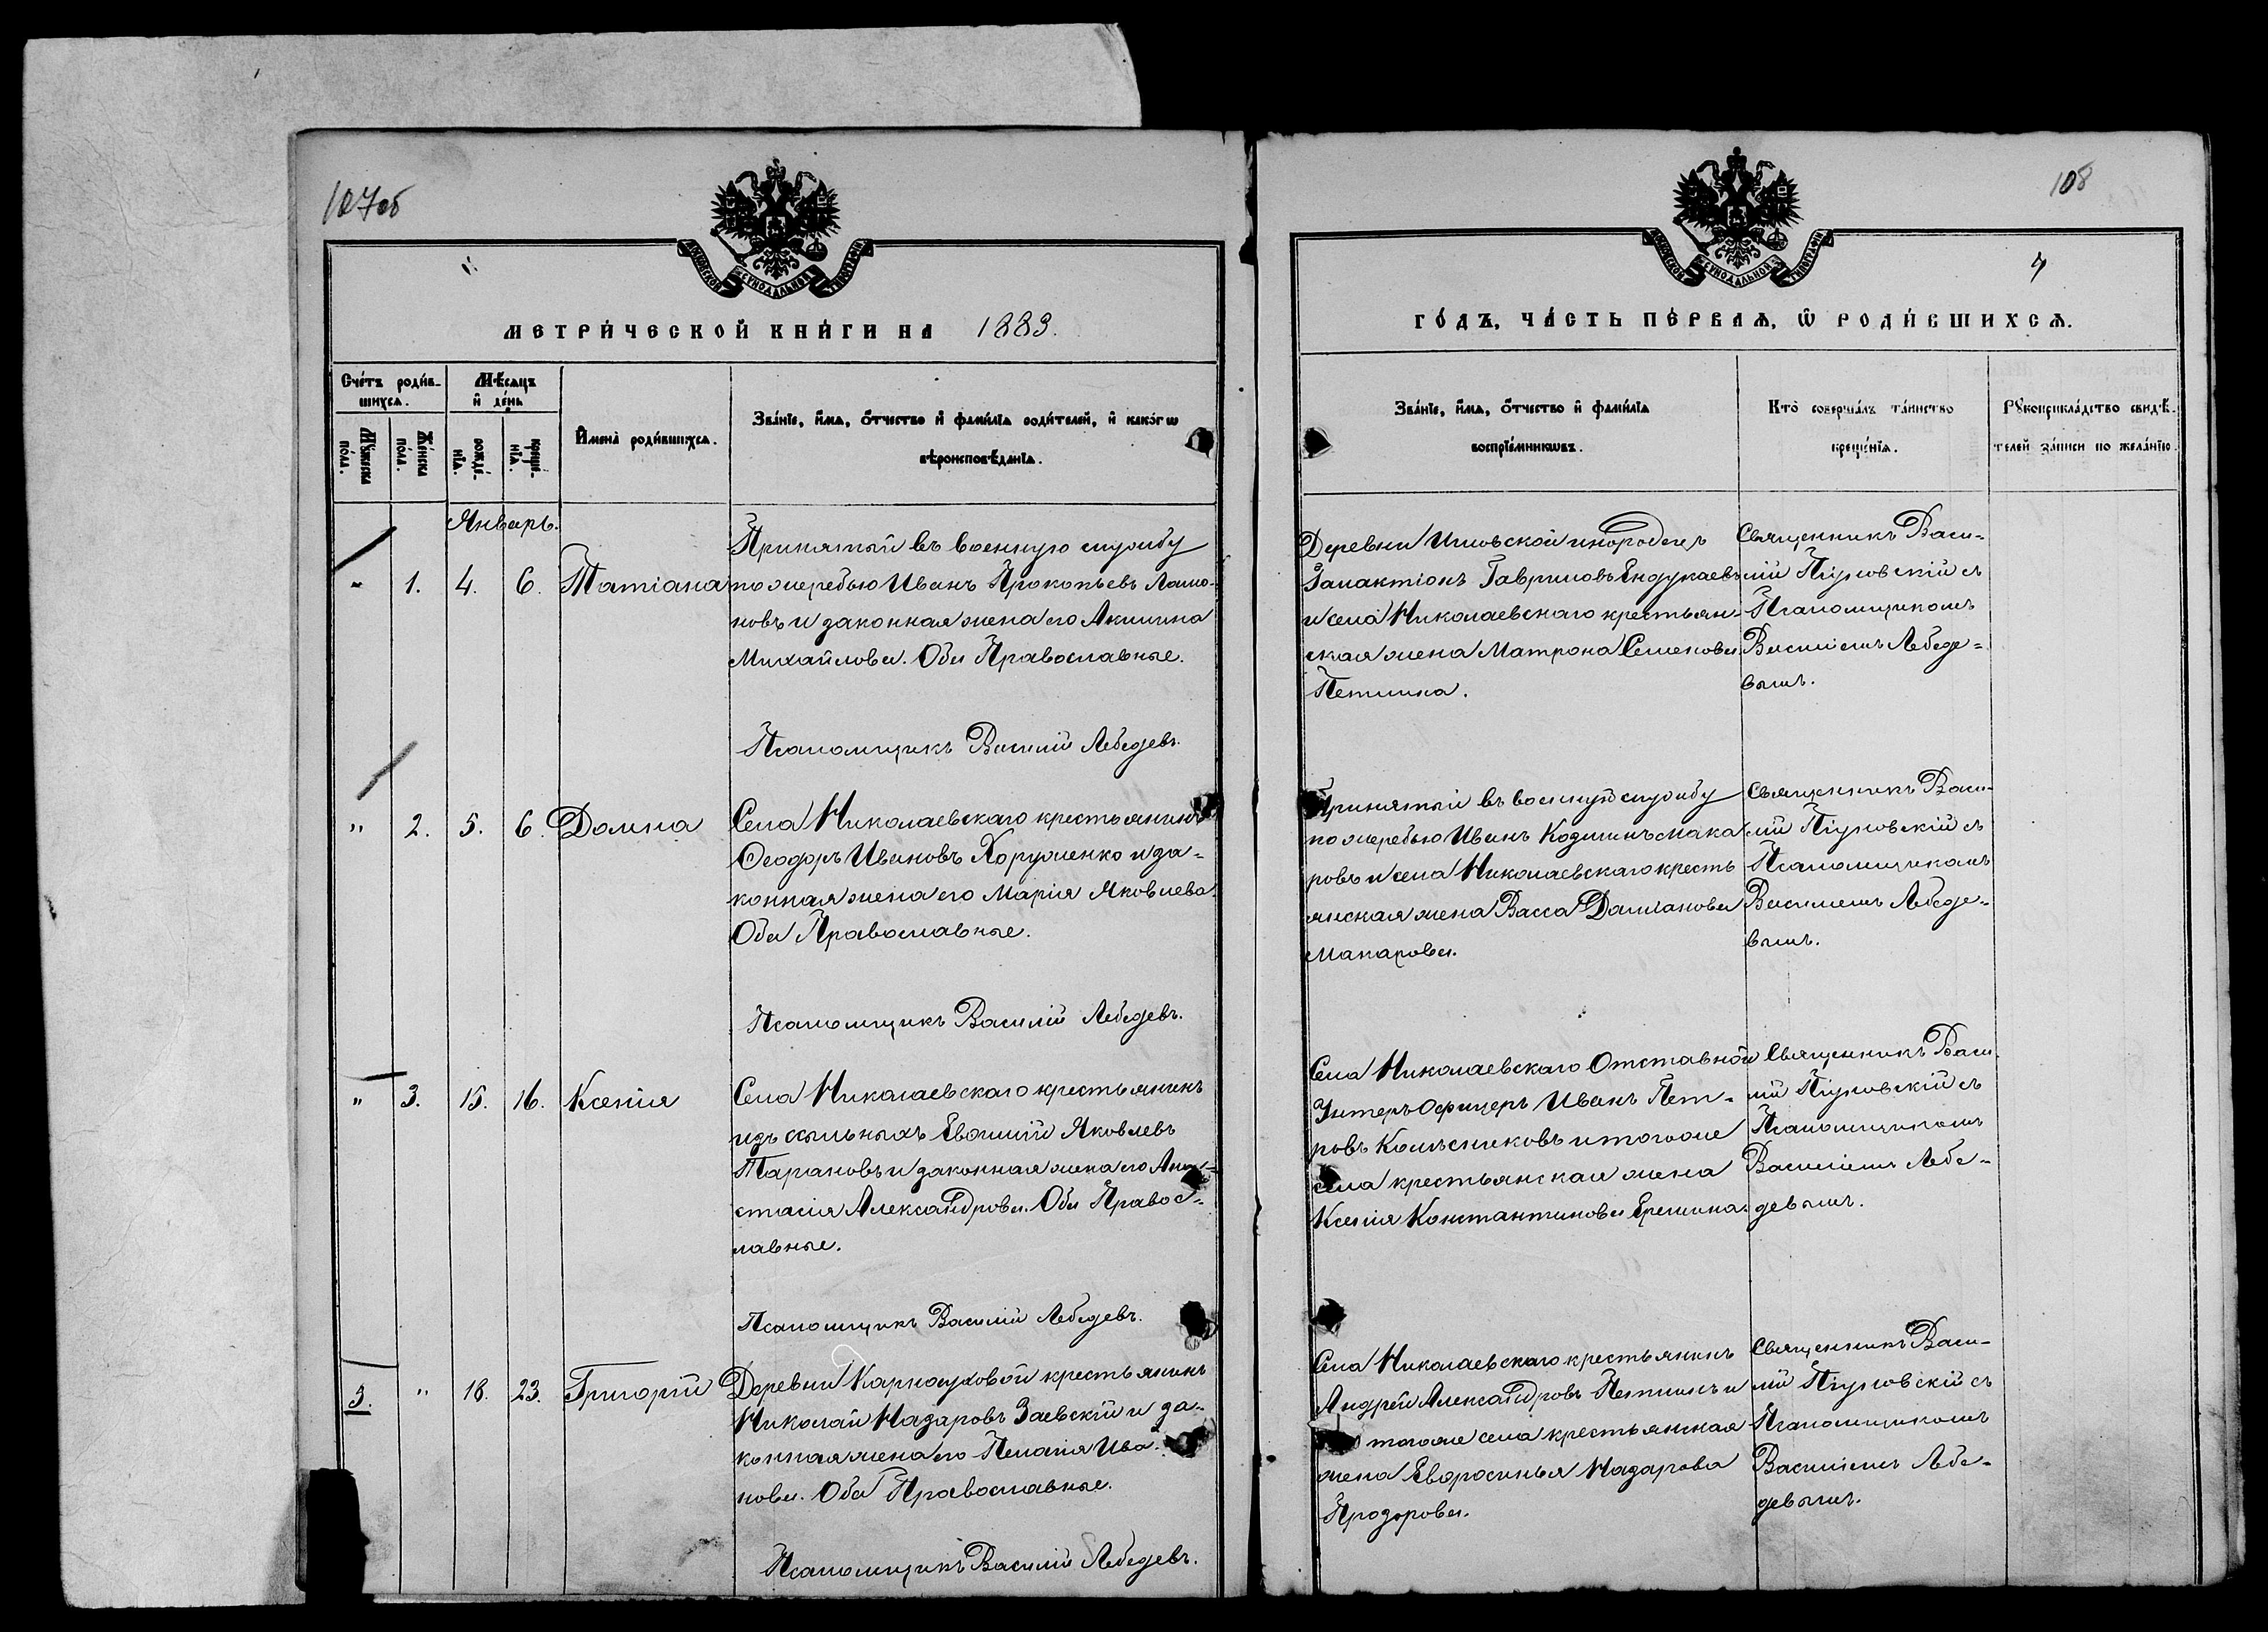 107об
108
4
МОСКОВСКОЙ СѴНОДАЛЬНОЙ ТИПОГРАФІИ
МОСКОВСКОЙ СѴНОДАЛЬНОЙ ТИПОГРАФІИ
МЕТРИ́ЧЕСКОЙ КНИ́ГИ НА 1883.
ГО́ДЪ, ЧА́СТЬ ПЕ́РВАѦ, Ѡ҆ РОДИ́ВШИХСѦ.
Сче́тъ роди́в-
шихсѧ.
Мѣ́сѧцъ
и҆ де́нь
И҆мена̀ роди́вшихсѧ.
Зва́нїе, и҆́мѧ, ѻ҆́тчество и҆ фами́лїѧ роди́телей, и҆ како́гѡ
вѣроисповѣ́данїѧ.
Мꙋ́жеска
по́ла.
Же́нска
по́ла.
рожде́-
нїѧ.
креще́-
нїѧ.
Зва́нїе, и҆́мѧ, ѻ҆́тчество и҆ фами́лїѧ
воспрїе́мникѡвъ.
Кто̀ соверша́лъ та́инство
креще́нїѧ.
Рꙋкоприкла́дство свидѣ́-
телей за́писи по жела́нїю.
Январь.
" 1. 4. 6. Татіана
Принятый въ военную службу
по жеребью Иванъ Прокопьевъ Лаmo-
новъ и законная жена его Акилина
Михайлова. Оба Православные.
Псаломщикъ Василій Лебедевъ.
Деревни Иmовской инородецъ
Галактіонъ Гавриловъ Ендукаевъ
и села Николаевскаго крестьян-
ская жена Матрона Семенова
Петлина.
Священникъ Васи-
лій Пуmовскій съ
Псаломщикомъ
Василіемъ Лебеде-
вымъ.
" 2. 5. 6. Домна
Села Николаевскаго крестьянинъ
Ѳеодоръ Ивановъ Хоруженко и за-
конная жена его Марія Яковлева.
Оба Православные.
Псаломщикъ Василій Лебедевъ.
Принятый въ военную службу
по жеребью Иванъ Козминъ Мака
ровъ и села Николаевскаго кресть
янская жена Васса Даміанова
Макарова.
Священникъ Васи-
лій съ
Псаломщикомъ
Василіемъ Лебеде-
вымъ.
" 3. 15. 16. Ксенія
Села Николаевскаго крестьянинъ
изъ ссыльныхъ Евѳимій Яковлевъ
Тарановъ и законная жена его Ана-
стасія Александрова. Оба Правос-
лавные.
Псаломщикъ Василій Лебедевъ.
Села Николаевскаго Отставной
Унтеръ Офицеръ Иванъ Пет-
ровъ Колесниковъ и тогоже
села крестьянская жена
Ксенія Константинова Еремина.
Священникъ Васи-
лій съ
Псаломщикомъ
Василіемъ Лебе-
девымъ.
3. " 18. 23. Григорій
Деревни Карнауховой крестьянинъ
Николай Назаровъ Заевскій и за-
конная жена его Пелагія Ива-
нова. Оба Православные.
Псаломщикъ Василій Лебедевъ.
Села Николаевскаго крестьянинъ
Андрей Александровъ Петлинъ и
тогоже села крестьянская
жена Евфросинья Назарова
Прозорова.
Священникъ Васи-
лій съ
Псаломщикомъ
Василіемъ Лебе-
девымъ.